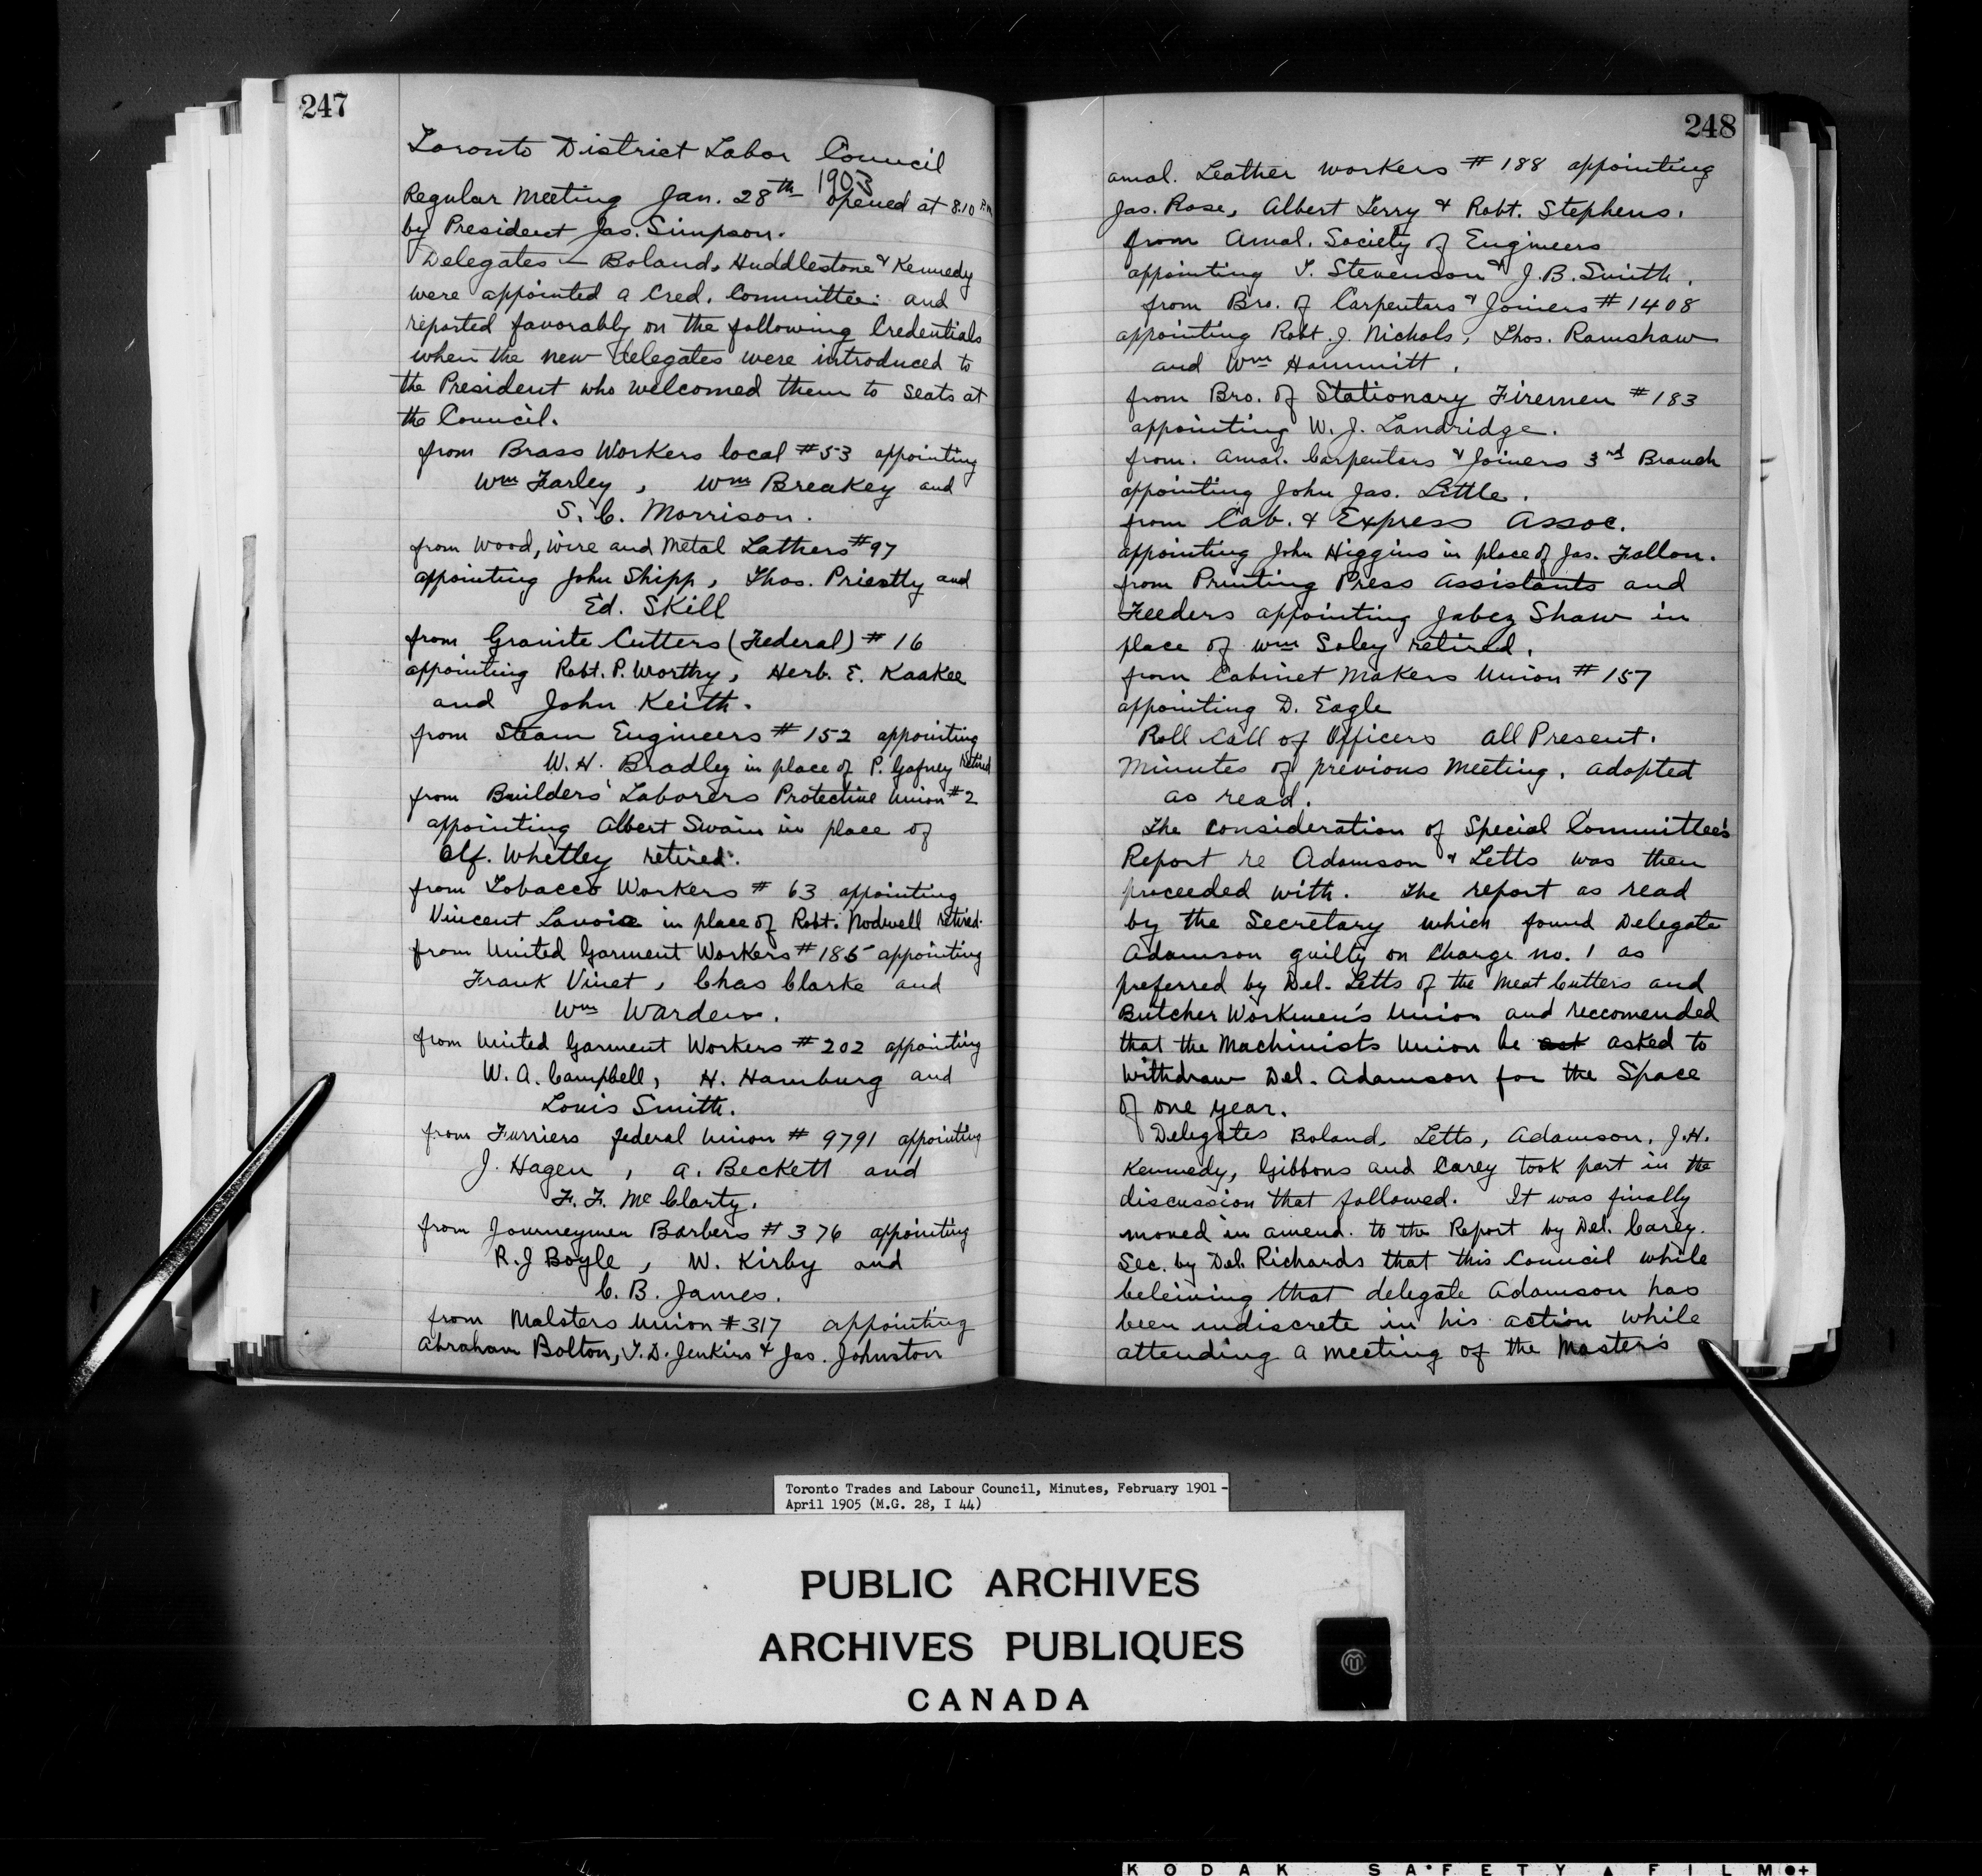 247
Toronto District Labor Council
1903
Regular Meeting Jan. 28th opened at 8.10 P.M
by President Jas. Simpson.
Delegates — Boland, Huddlestone & Kennedy
were appointed a Cred. Committee: and
reported favorably on the following Credentials
when the new delegates were introduced to
the President who welcomed them to seats at
the Council.
from Brass Workers local #53 appointing
Wm Farley, Wm Breakey and
S. C. Morrison.
from Wood, Wire and Metal Lathers #97
appointing John Shipp, Thos. Priestly and
Ed. Skill
from Granite Cutters (Federal) # 16
appointing Robt. P. Worthy, Herb. E. Kaakee
and John Keith.
from Steam Engineers # 152 appointing
W. H. Bradley in place of P. Gafney retired
from Builders' Laborers Protective Union #2
appointing Albert Swain in place of
Alf. Whetley retired.
from Tobacco Workers # 63 appointing
Vincent Lavoie in place of Robt. Nodwell retired.
from United Garment Workers # 185 appointing
Frank Vinet, Chas Clarke and
Wm Warden.
from United Garment Workers # 202 appointing
W. A. Campbell, H. Hamburg and
Louis Smith.
from Furriers federal Union # 9791 appointing
J. Hagen, A. Beckett and
F. F. McClarty.
from Journeymen Barbers # 376 appointing
R. J Boyle, W. Kirby and
C. B. James.
from Malsters Union # 317 appointing
Abraham Bolton, T. D. Jenkins & Jas. Johnston
248
amal. Leather workers # 188 appointing
Jas. Rose, Albert Terry & Robt. Stephens.
from Amal. Society of Engineers
appointing T. Stevenson & J. B. Smith.
from Bro. of Carpenters & Joiners # 1408
appointing Robt. J. Nichols, Thos. Ramshaw
and Wm Hammitt.
from Bro. of Stationary Firemen # 183
appointing W. J. Landridge.
from. Amal. Carpenters & Joiners 3rd Branch
appointing John Jas. Little.
from Cab. & Express Assoc.
appointing John Higgins in place of Jas. Fallon.
from Printing Press Assistants and
Feeders appointing Jabez Shaw in
place of Wm Soley retired.
from Cabinet Makers Union # 157
appointing D. Eagle
Roll Call of Officers all Present.
Minutes of previous Meeting, adopted
as read.
The consideration of Special Committee's
Report re Adamson & Letts was then
proceeded with. The report as read
by the Secretary which found Delegate
Adamson guilty on Charge no. 1 as
preferred by Del. Letts of the Meat Cutters and
Butcher Workmen's Union and reccomended
that the Machinists Union be ask asked to
withdraw Del. Adamson for the Space
of one year.
Delegates Boland, Letts, Adamson, J.H.
Kennedy, Gibbons and Carey took part in the
discussion that followed. It was finally
moved in amend. to the Report by Del. Carey.
Sec. by Del. Richards that this Council while
beleiving that delegate Adamson has
been indiscrete in his action while
attending a meeting of the Master's
Toronto Trades and Labour Council, Minutes, February 1901 -
April 1905 (M.G. 28, I 44)
PUBLIC ARCHIVES
ARCHIVES PUBLIQUES
CANADA
KODAK SAFETY FILM